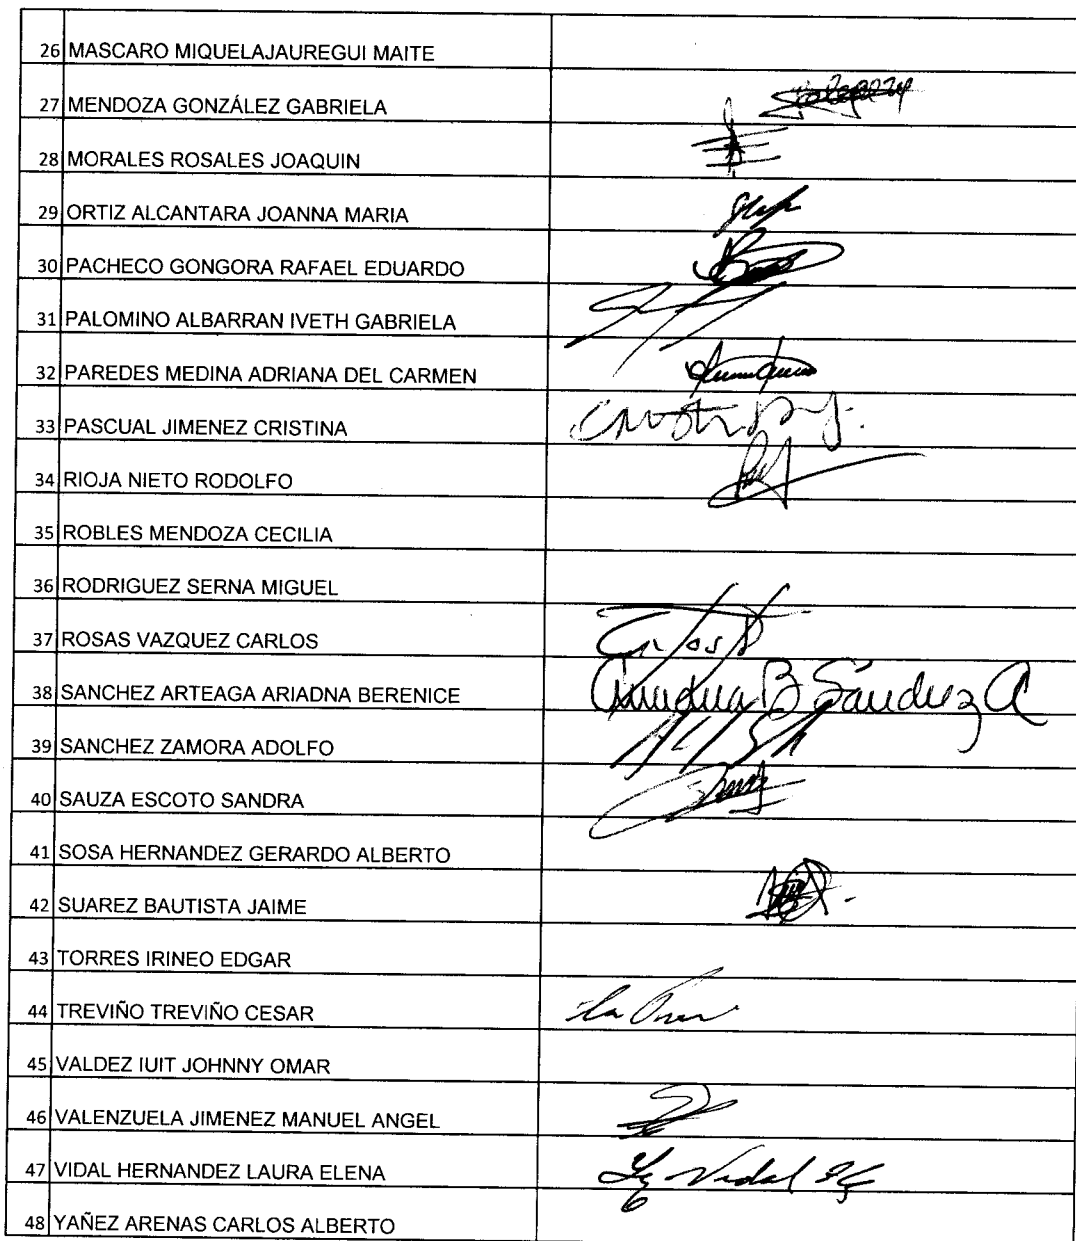 26 MASCARO MIQUELAJAUREGUI MAITE
27 MENDOZA GONZÁLEZ GABRIELA
28 MORALES ROSALES JOAQUIN
29 ORTIZ ALCANTARA JOANNA MARIA
30 PACHECO GONGORA RAFAEL EDUARDO
31 PALOMINO ALBARRAN IVETH GABRIELA
32 PAREDES MEDINA ADRIANA DEL CARMEN
33 PASCUAL JIMENEZ CRISTINA
34 RIOJA NIETO RODOLFO
35 ROBLES MENDOZA CECILIA
36 RODRIGUEZ SERNA MIGUEL
37 ROSAS VAZQUEZ CARLOS
38 SANCHEZ ARTEAGA ARIADNA BERENICE Ariadna B Sánchez A
39 SANCHEZ ZAMORA ADOLFO
40 SAUZA ESCOTO SANDRA
41 SOSA HERNANDEZ GERARDO ALBERTO
42 SUAREZ BAUTISTA JAIME
43 TORRES IRINEO EDGAR
44 TREVIÑO TREVIÑO CESAR
45 VALDEZ IUIT JOHNNY OMAR
46 VALENZUELA JIMENEZ MANUEL ANGEL
47 VIDAL HERNANDEZ LAURA ELENA Vidal
48 YAÑEZ ARENAS CARLOS ALBERTO